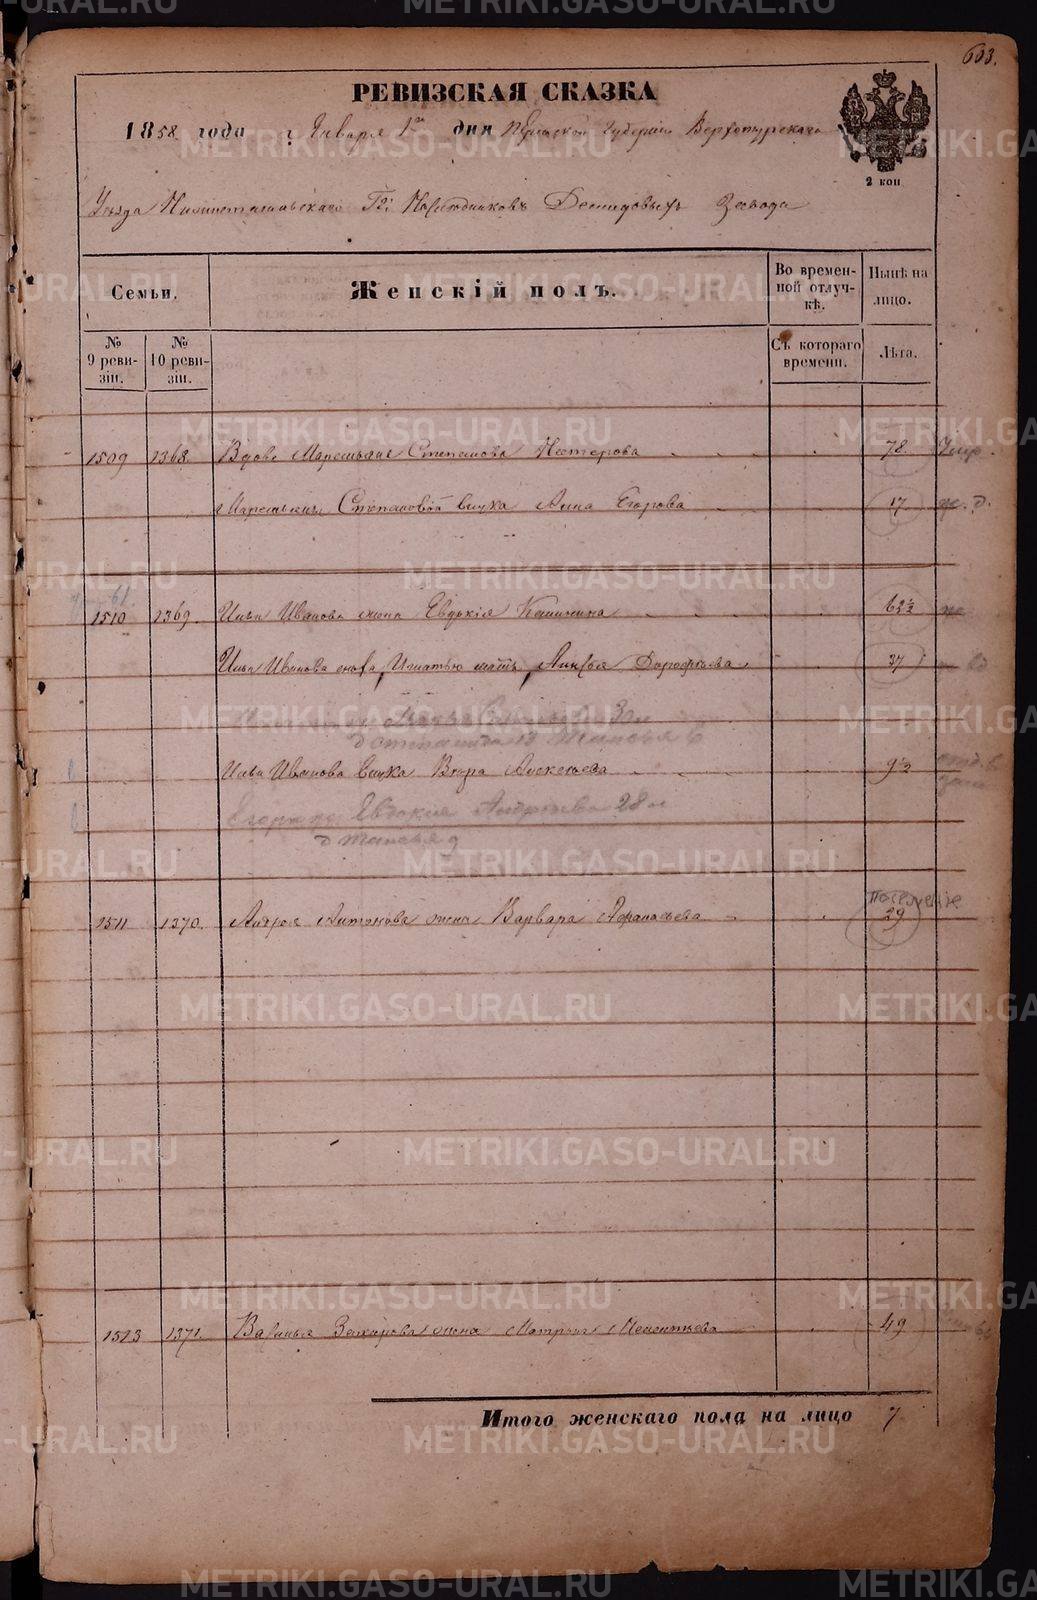 603.
РЕВИЗСКАЯ СКАЗКА
1858 года Января 1го дня Пермской Губернии Верхотурскаго
2 коп
Уѣзда Нижнетагильскаго Гг: Наслѣдниковъ Демидовыхъ Завода
Семьи.
Женскій полъ.
Во времен-
ной отлуч-
кѣ.
Нынѣ на
лицо.
№
9 реви-
зіи.
№
10 реви-
зіи.
Съ котораго
времени.
Лѣта.
1509 1368. Вдова Маремьяна Степанова Нестерова 78
Маремьяны Степановой внука Анна Егорова 17
61
1510 1369. Ильи Иванова жена Евдокія 62½
Ильи Иванова сноха, Игнатью мать, Анисья Дорофѣева 37
Ильи Иванова внука Вѣра Алексѣева 9½
Евдокия Андреева 28
1511 1370. Андрея Антонова жена Варвара Афанасьева 29
1513 1371. Василья Захарова жена Матрена Мелентьева 49
Итого женскаго пола на лицо 7
METRIKI.GASO-URAL.RU